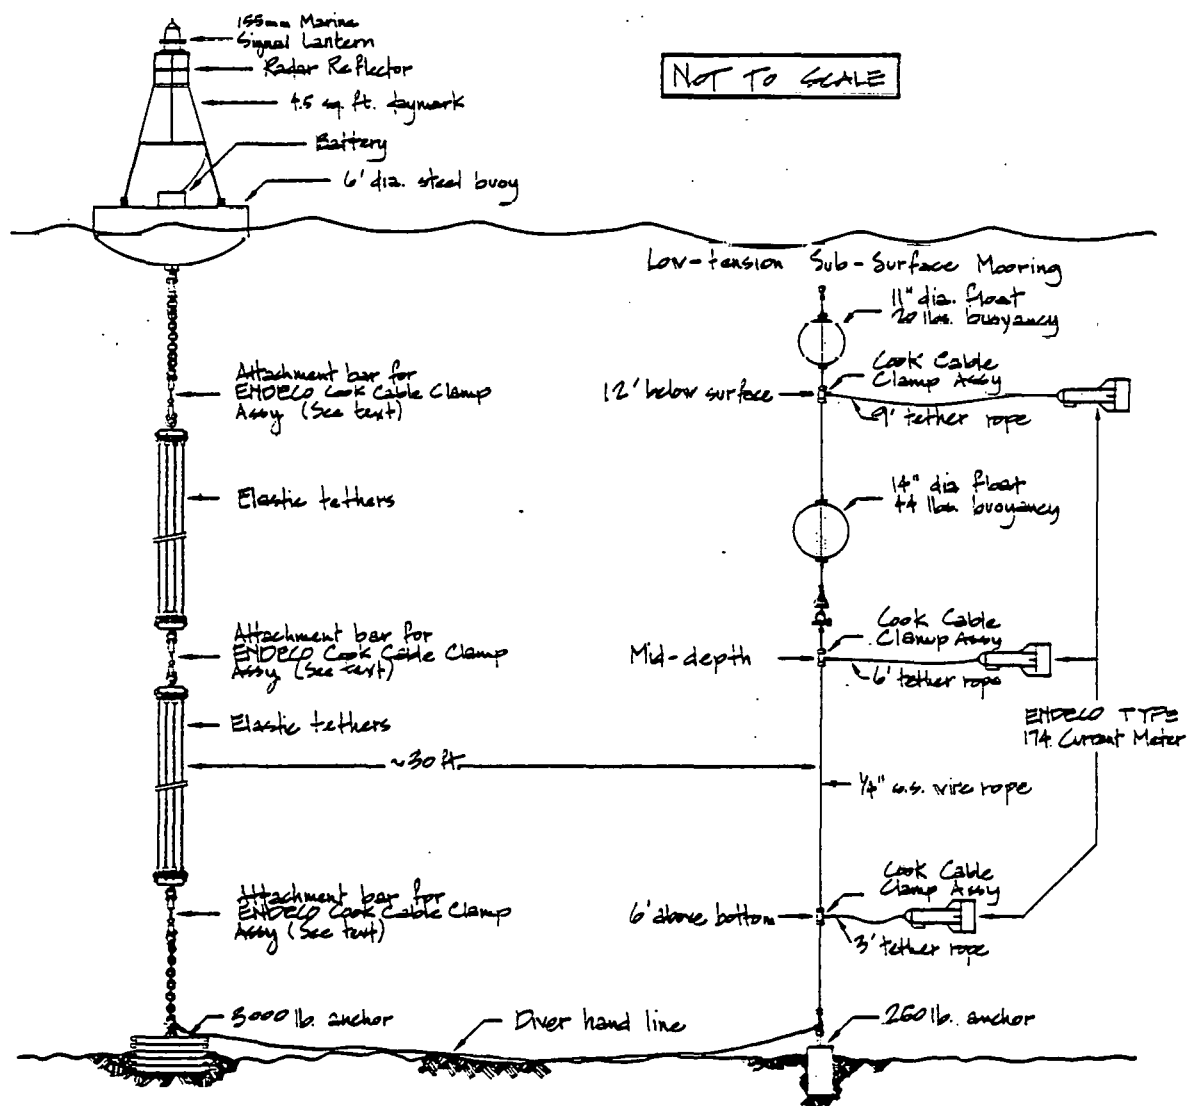 155mm Marine
Signal Lantern
Radar Reflector
4.5 sq. ft. daymark
Battery
6' dia. steel buoy
NOT TO SCALE
Low-tension Sub-Surface Mooring
11" dia. float
20 lbs. buoyancy
Cook Cable
Clamp Assy
12' below surface
9' tether rope
Attachment bar for
ENDECO Cook Cable Clamp
Assy (See text)
Elastic tethers
14" dia float
44 lbs. buoyancy
Cook Cable
Clamp Assy
Mid-depth
6' tether rope
Attachment bar for
ENDECO Cook Cable Clamp
Assy (See text)
Elastic tethers
ENDECO TYPE
174 Current Meter
~30 ft.
1/4" s.s. wire rope
Cook Cable
Clamp Assy
6' above bottom
3' tether rope
Attachment bar for
ENDECO Cook Cable Clamp
Assy (See text)
3000 lb. anchor
Diver hand line
260 lb. anchor